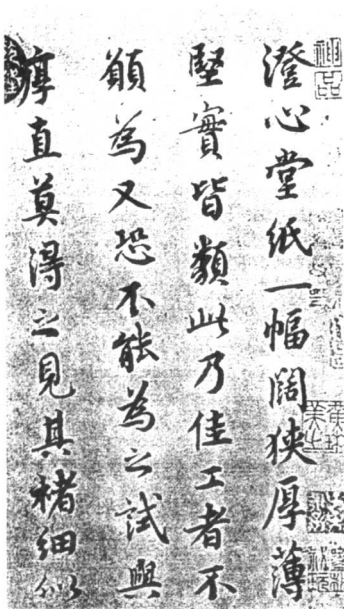 澄心堂紙一幅闊狹厚薄
堅實皆類此乃佳工者不
願為又恐不能為之試與
厚直莫得之見其楮細似
神品